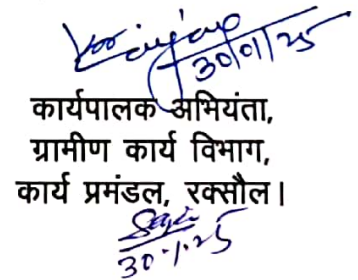 30/01/25
कार्यपालक अभियंता,
ग्रामीण कार्य विभाग,
कार्य प्रमंडल, रक्सौल।
30.1.25